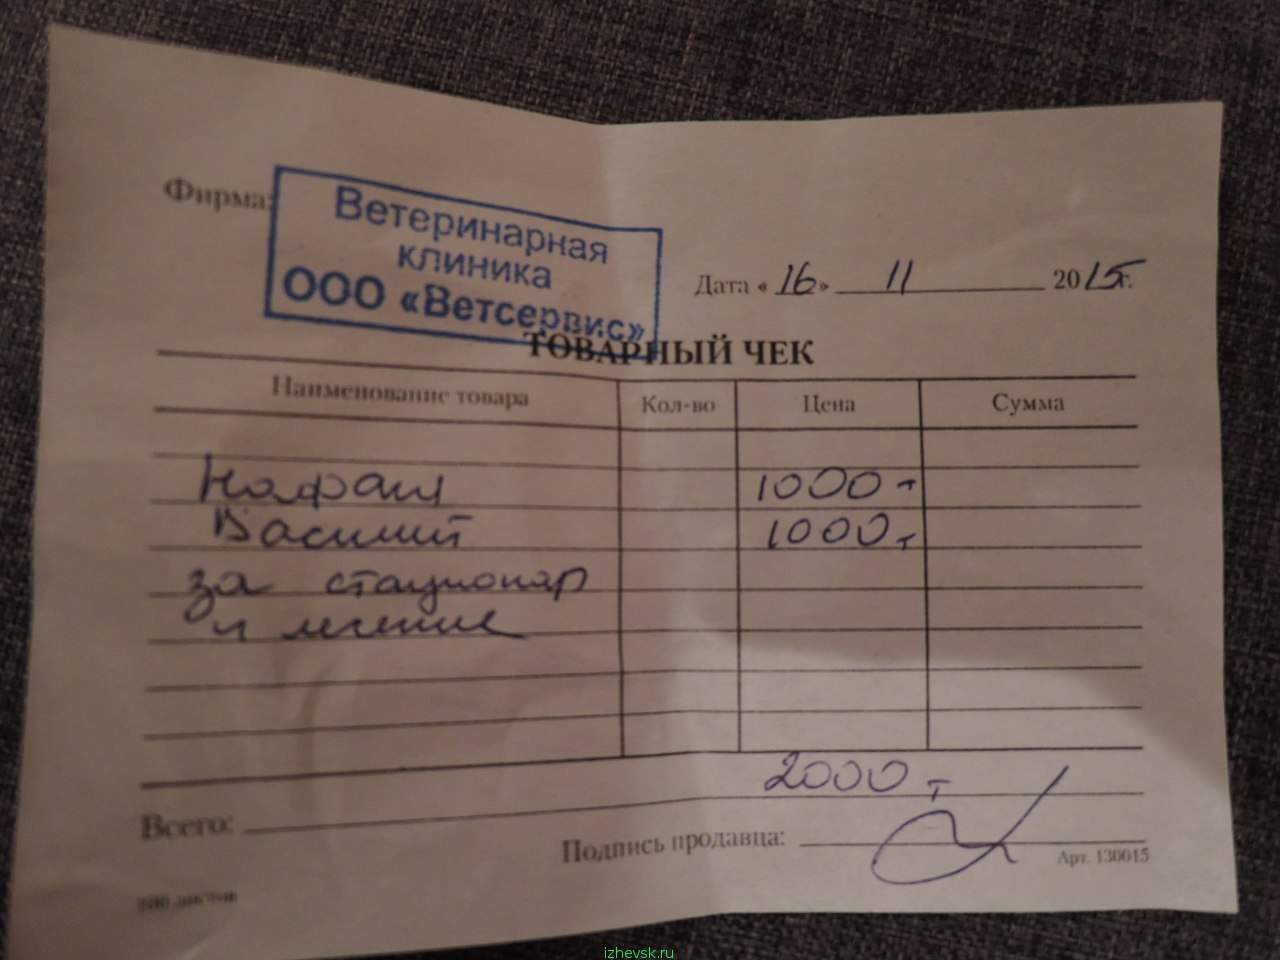 Фирма:
Ветеринарная
клиника
ООО «Ветсервис»
Дата «16» 11 2015г.
ТОВАРНЫЙ ЧЕК
Наименование товара Кол-во Цена Сумма
Нафаня 1000-
Василий 1000-
за стационар
и лечение
2000-
Всего:
Подпись продавца:
Арт. 130615
100 листов
izhevsk.ru